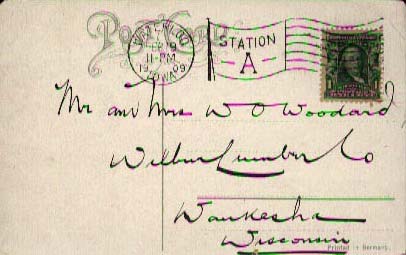 Post Card
WATERLOO
FEB 9
11-PM
1909
IOWA
STATION
A
Mr and Mrs W O Woodard
Wilbur Lumber Co
Waukesha
Wisconsin
Printed in Germany.